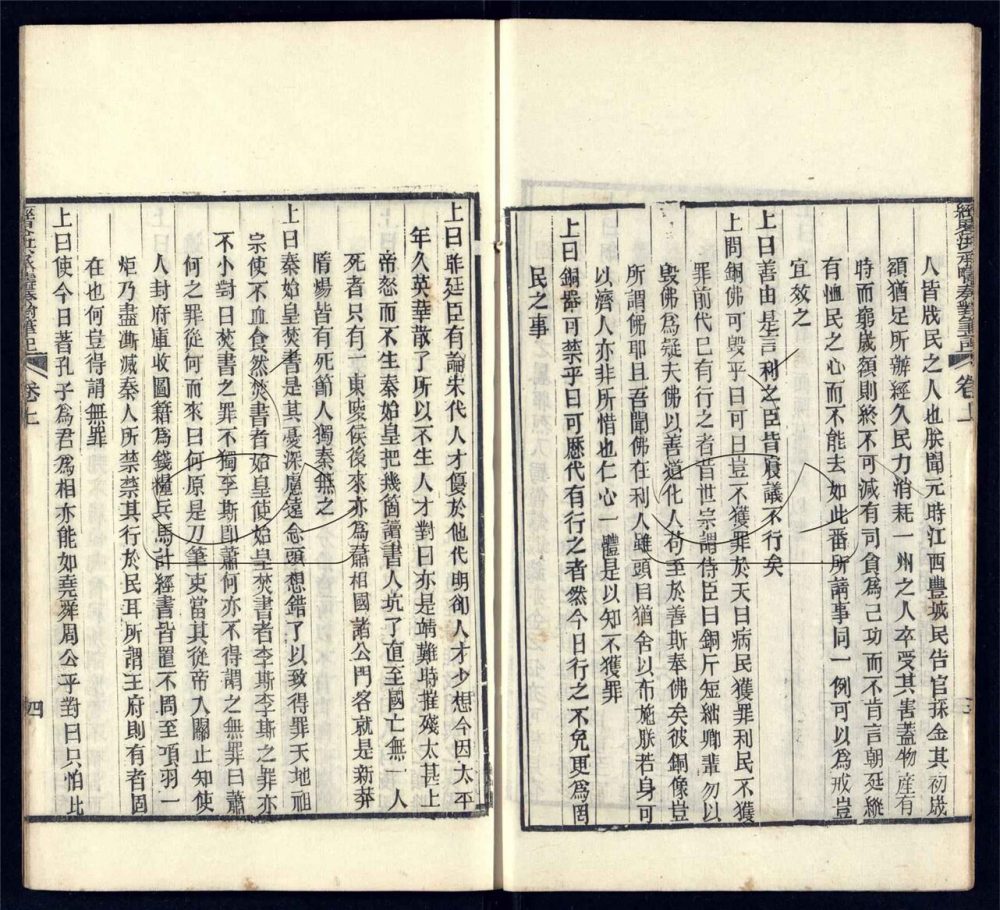 人皆戕民之人也朕聞元時江西豐城民告官採金其初歲
額猶足所辦經久民力消耗一州之人卒受其害蓋物産有
時而窮歲額則終不可減有司貪爲己功而不肯言朝廷縱
有恤民之心而不能去如此番所請事同一例可以爲戒豈
宜效之
上曰善由是言利之臣皆廢議不行矣
上問銅佛可毀乎曰可曰豈不獲罪於天曰病民獲罪利民不獲
罪前代已有行之者昔世宗謂侍臣曰銅斤短絀卿輩勿以
毀佛爲疑夫佛以善道化人苟至於善斯奉佛矣彼銅像豈
所謂佛耶且吾聞佛在利人雖頭目猶舍以布施朕若身可
以濟人亦非所惜也仁心一體是以知不獲罪
上曰銅器可禁乎曰可歷代有行之者然今日行之不免更爲罔
民之事
卷上
上曰昨廷臣有論宋代人才優於他代明卻人才少想今因太平
年久英華散了所以不生人才對曰亦是靖難時摧殘太甚上
帝怒而不生秦始皇把幾箇讀書人坑了直至國亡無一人
死者只有一東陵侯後來亦爲蕭相國諸公門客就是新莽
隋煬皆有死節人獨秦無之
上曰秦始皇焚書是其憂深慮遠念頭想錯了以致得罪天地祖
宗使不血食然焚書者始皇使始皇焚書者李斯李斯之罪亦
不小對曰焚書之罪不獨李斯卽蕭何亦不得謂之無罪曰蕭
何之罪從何而來曰何原是刀筆吏當其從帝入關止知使
人封府庫收圖籍爲錢糧兵馬計經書皆置不問至項羽一
炬乃盡澌滅秦人所禁禁其行於民耳所謂王府則有者固
在也何豈得謂無罪
上曰使今日著孔子爲君爲相亦能如堯舜周公乎對曰只怕比
卷上
四